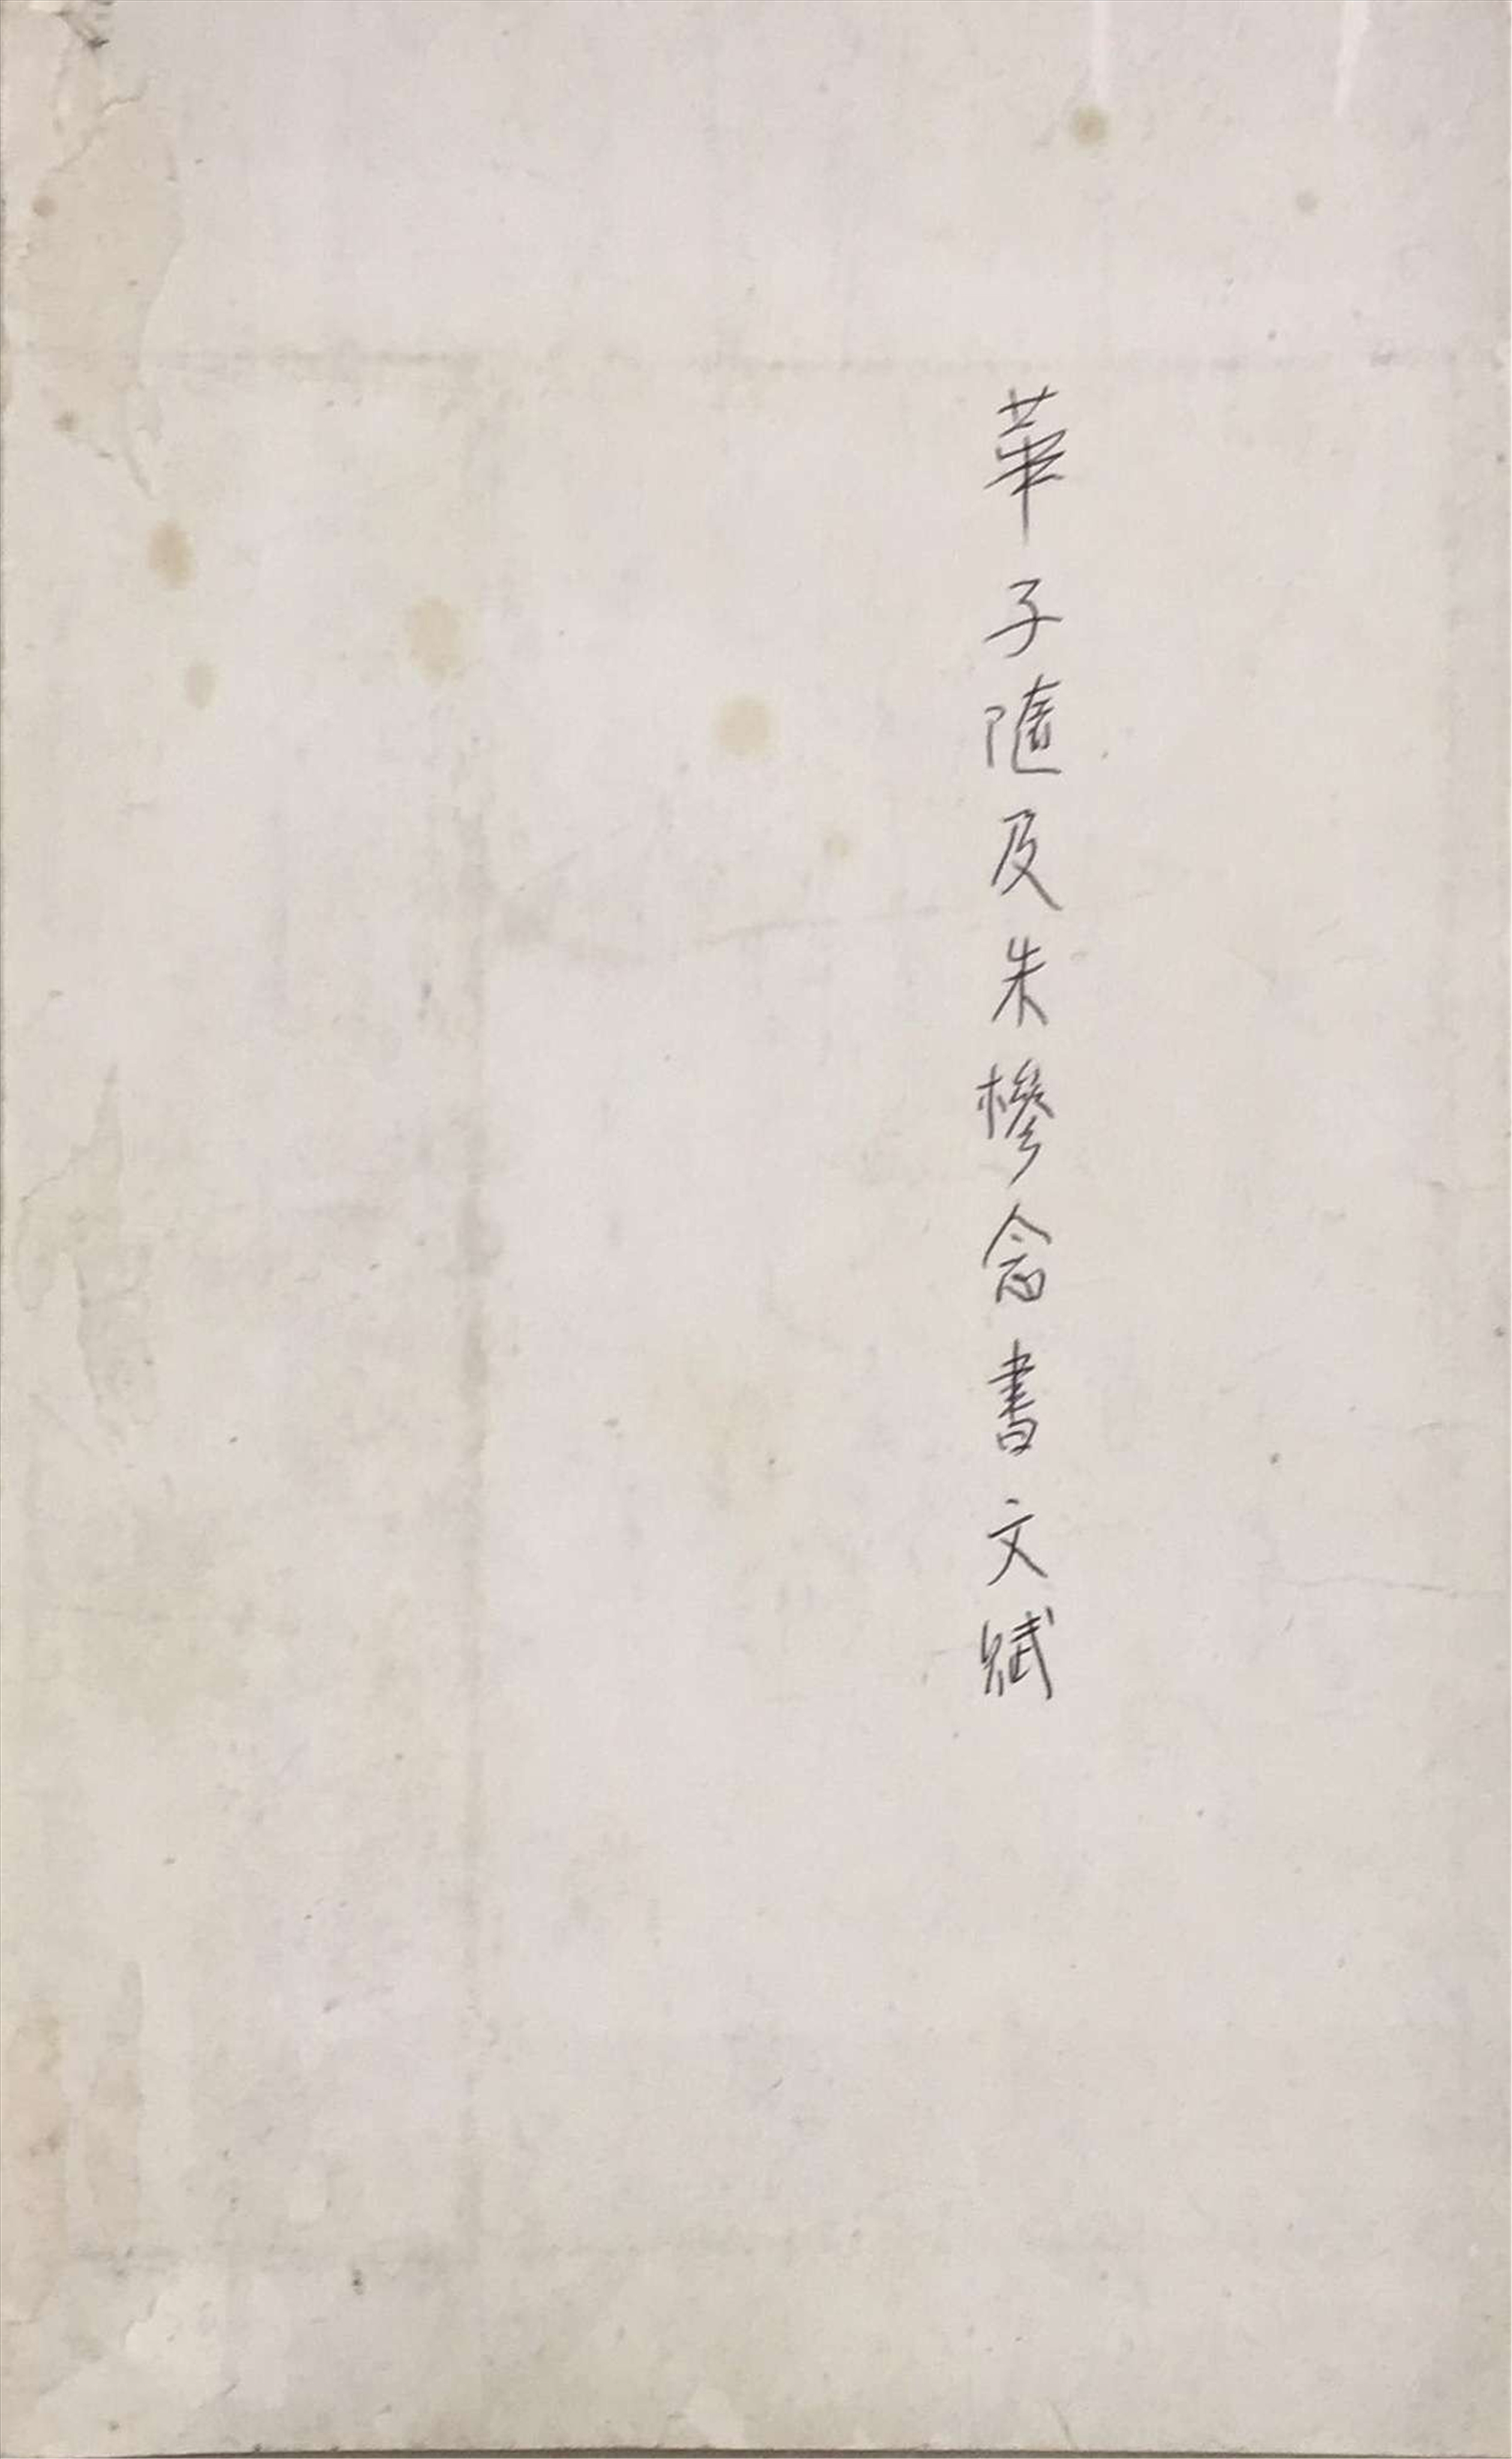 華子隨及朱槮念書文賦